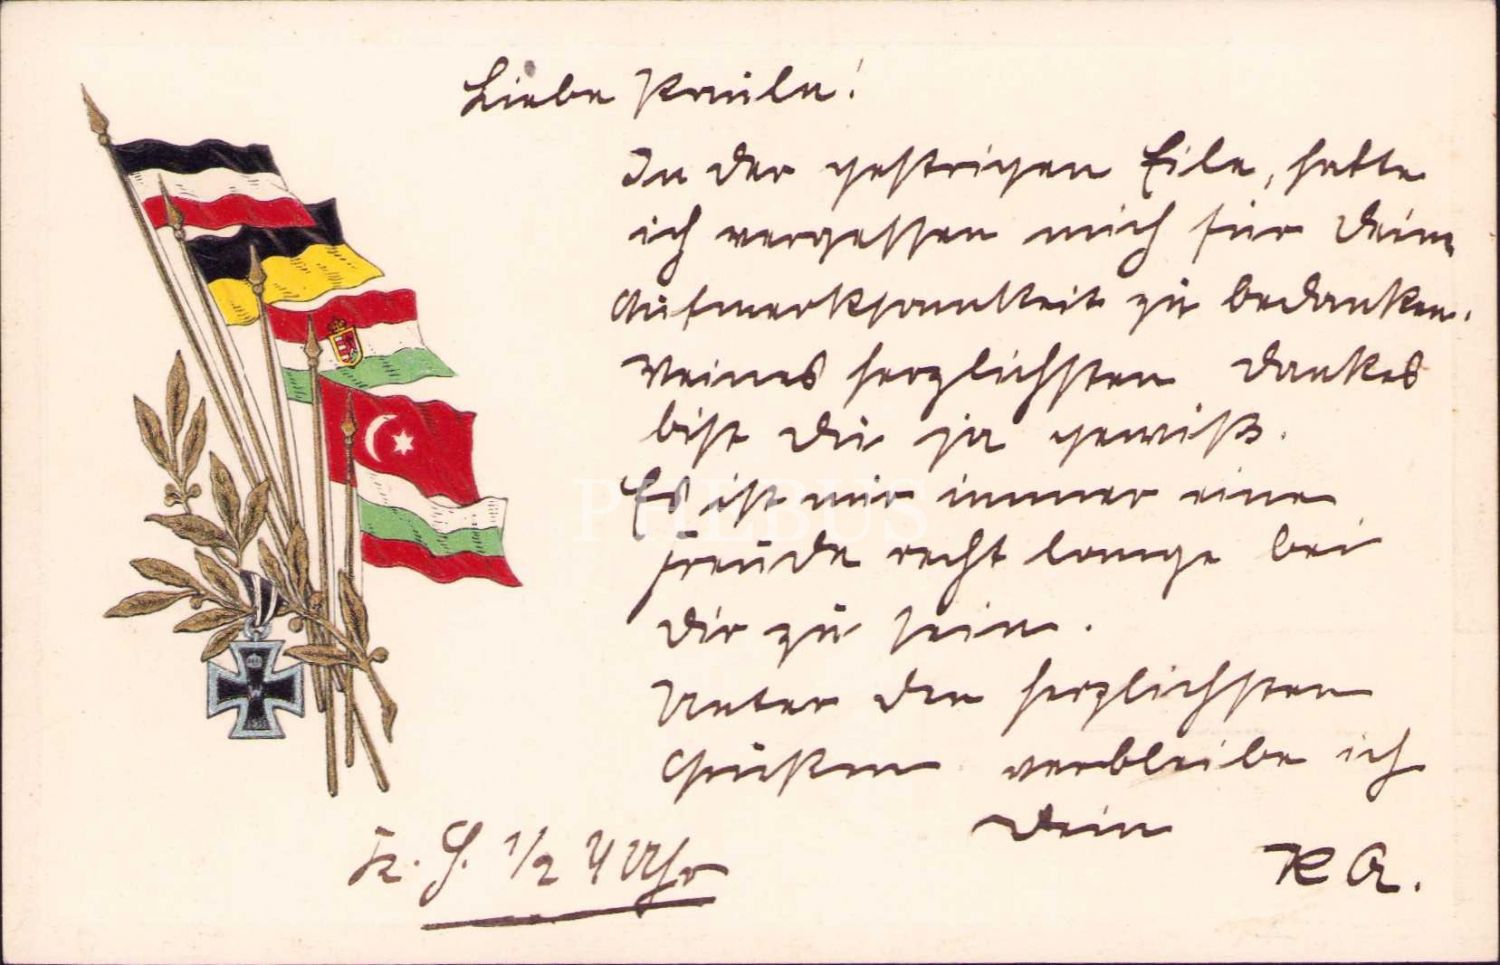 Liebe Paula!
In der gestrigen Eile, hatte
ich vergessen mich für Deine
Aufmerksamkeit zu bedanken.
Meines herzlichsten Dankes
bist Du ja gewiß.
Es ist mir immer eine
Freude recht lange bei
Dir zu sein.
Unter den herzlichsten
Grüßen verbleibe ich
Dein
K A.
1/2 4 Uhr
PHEBUS